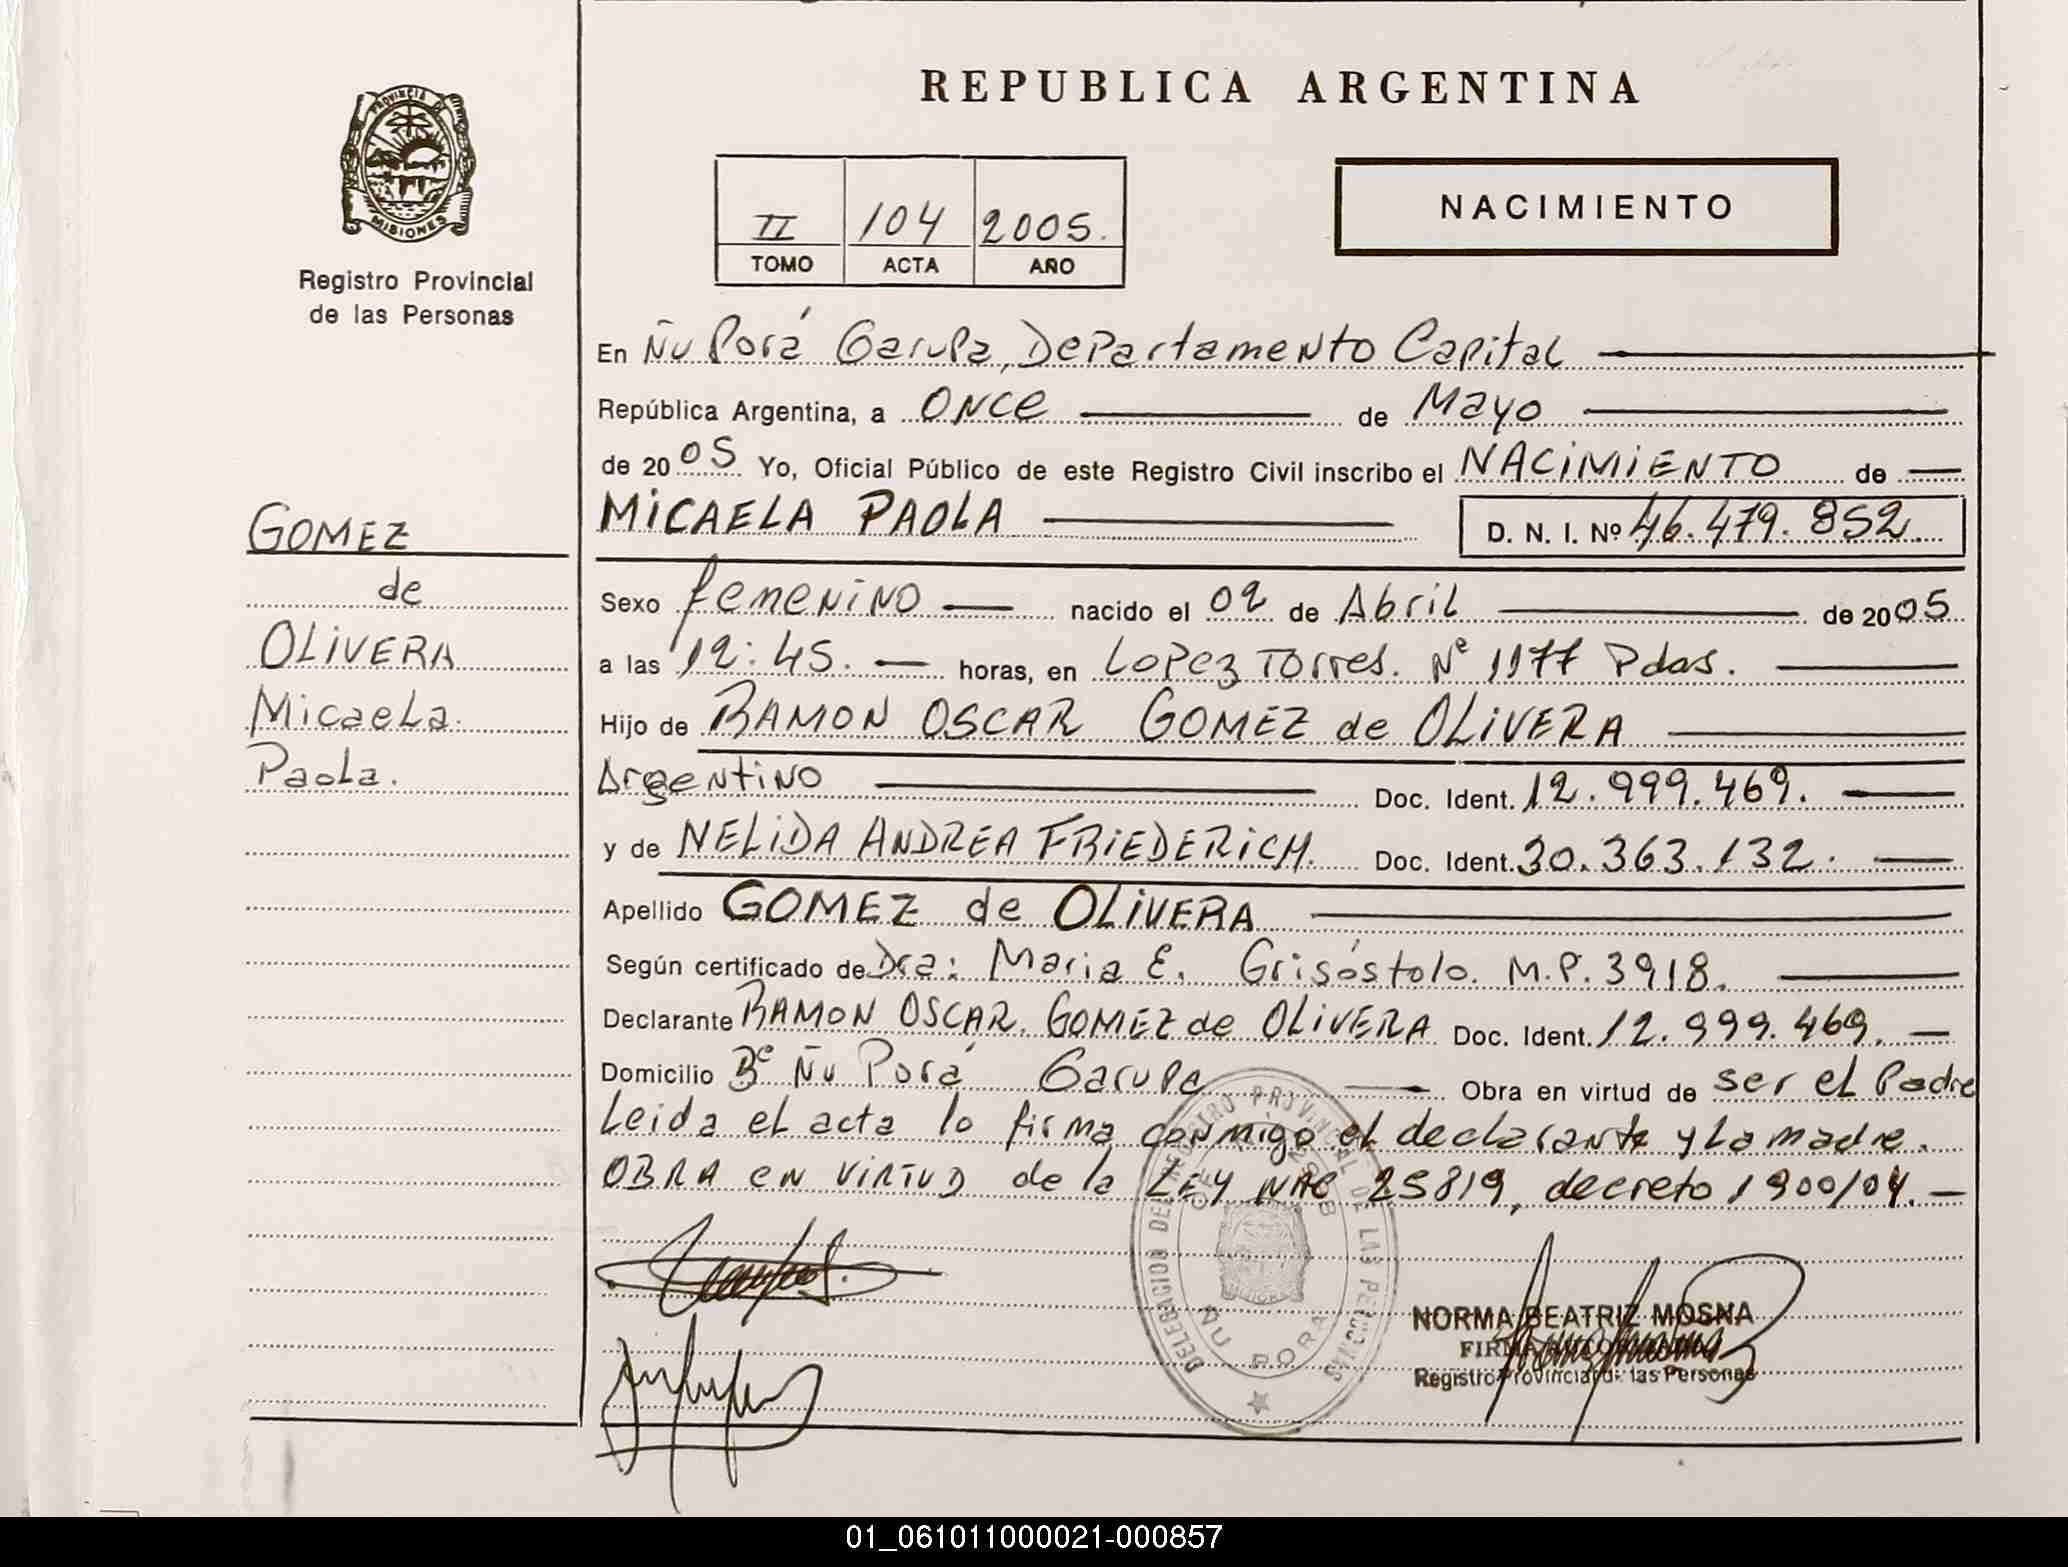 REPUBLICA ARGENTINA
PROVINCIA DE
MISIONES
Registro Provincial
de las Personas
II 104 2005.
TOMO ACTA AÑO
NACIMIENTO
En Ñu Porá Garupa, Departamento Capital
República Argentina, a once de Mayo
de 2005 Yo, Oficial Público de este Registro Civil inscribo el NACIMIENTO de
MICAELA PAOLA D. N. I. Nº 46.479.852
GOMEZ
de
OLIVERA
Micaela
Paola.
Sexo femenino nacido el 02 de Abril de 2005
a las 12:45. horas, en Lopez Torres. Nº 1177 Pdas.
Hijo de RAMON OSCAR GOMEZ de OLIVERA
Argentino Doc. Ident. 12.999.469.
y de NELIDA ANDREA FRIEDERICH. Doc. Ident. 30.363.132.
Apellido GOMEZ de OLIVERA
Según certificado de Dra: Maria E. Grisóstolo. M.P. 3918.
Declarante RAMON OSCAR. GOMEZ de OLIVERA Doc. Ident. 12.999.469.
Domicilio Bº Ñu Porá Garupa Obra en virtud de ser el Padre
Leida el acta lo firma conmigo el declarante y la madre.
OBRA en virtud de la LEY NAC 25819, decreto 1900/04.
DELEGACION DEL REGISTRO PROVINCIAL DE LAS PERSONAS
ÑU PORA
NORMA BEATRIZ MOSNA
Registro Provincial de las Personas
01_061011000021-000857